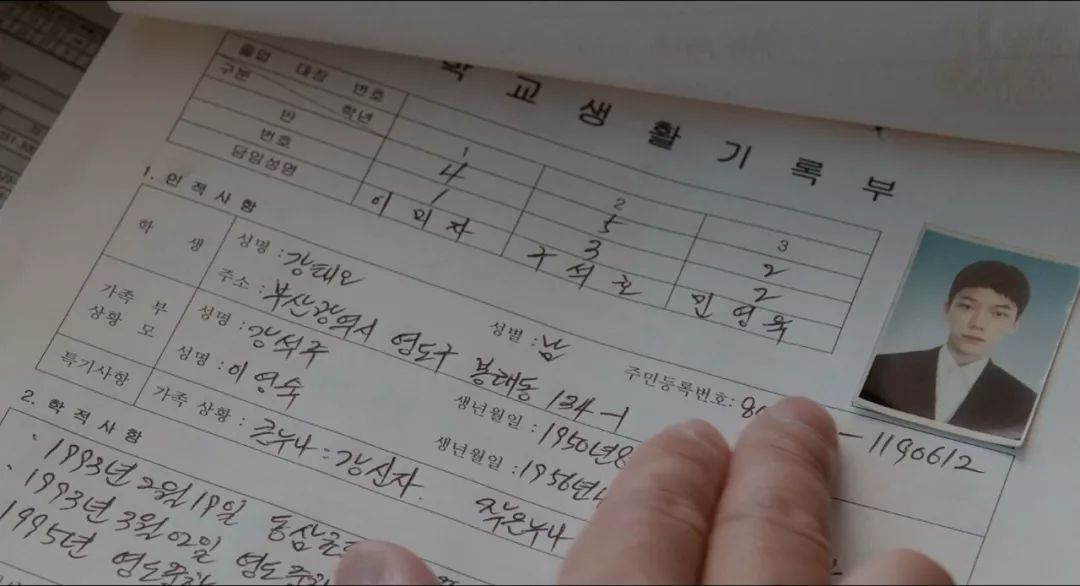 학교생활기록부
졸업 대장 번호
구분 학년 1 2 3
반 4 5 2
번호 1 3 2
담임성명 이미자 구석호 민영옥
1. 인적사항
학 생 성명 : 강태오 성별 : 남 주민등록번호 : 80 -1190612
주소 : 부산광역시 영도구 봉래동 134-1
가족 상황 부 성명 : 강석주 생년월일 : 1950년8
모 성명 : 이영숙 생년월일 : 1956년
특기사항 가족 상황 : 큰누나 : 강신자. 작은누나
2. 학적사항
1993년 2월 19일 동삼
1993년 3월 02일 영도
1995년 영도중